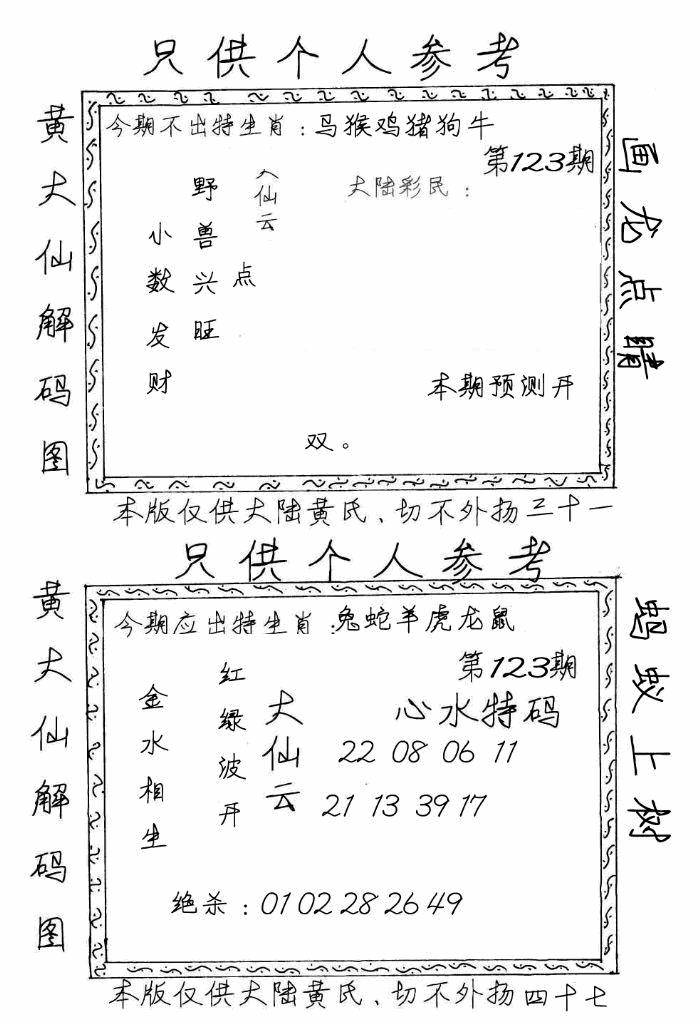 只供个人参考
黄大仙解码图
今期不出特生肖：马猴鸡猪狗牛
第123期
大陆彩民：
大仙云
野兽兴旺
小数发财
点
本期预测开
双。
画龙点睛
本版仅供大陆黄氏、切不外扬三十一
只供个人参考
黄大仙解码图
今期应出特生肖：兔蛇羊虎龙鼠
第123期
心水特码
22 08 06 11
21 13 39 17
大仙云
红绿波开
金水相生
绝杀：01 02 28 26 49
蚂蚁上树
本版仅供大陆黄氏、切不外扬四十七